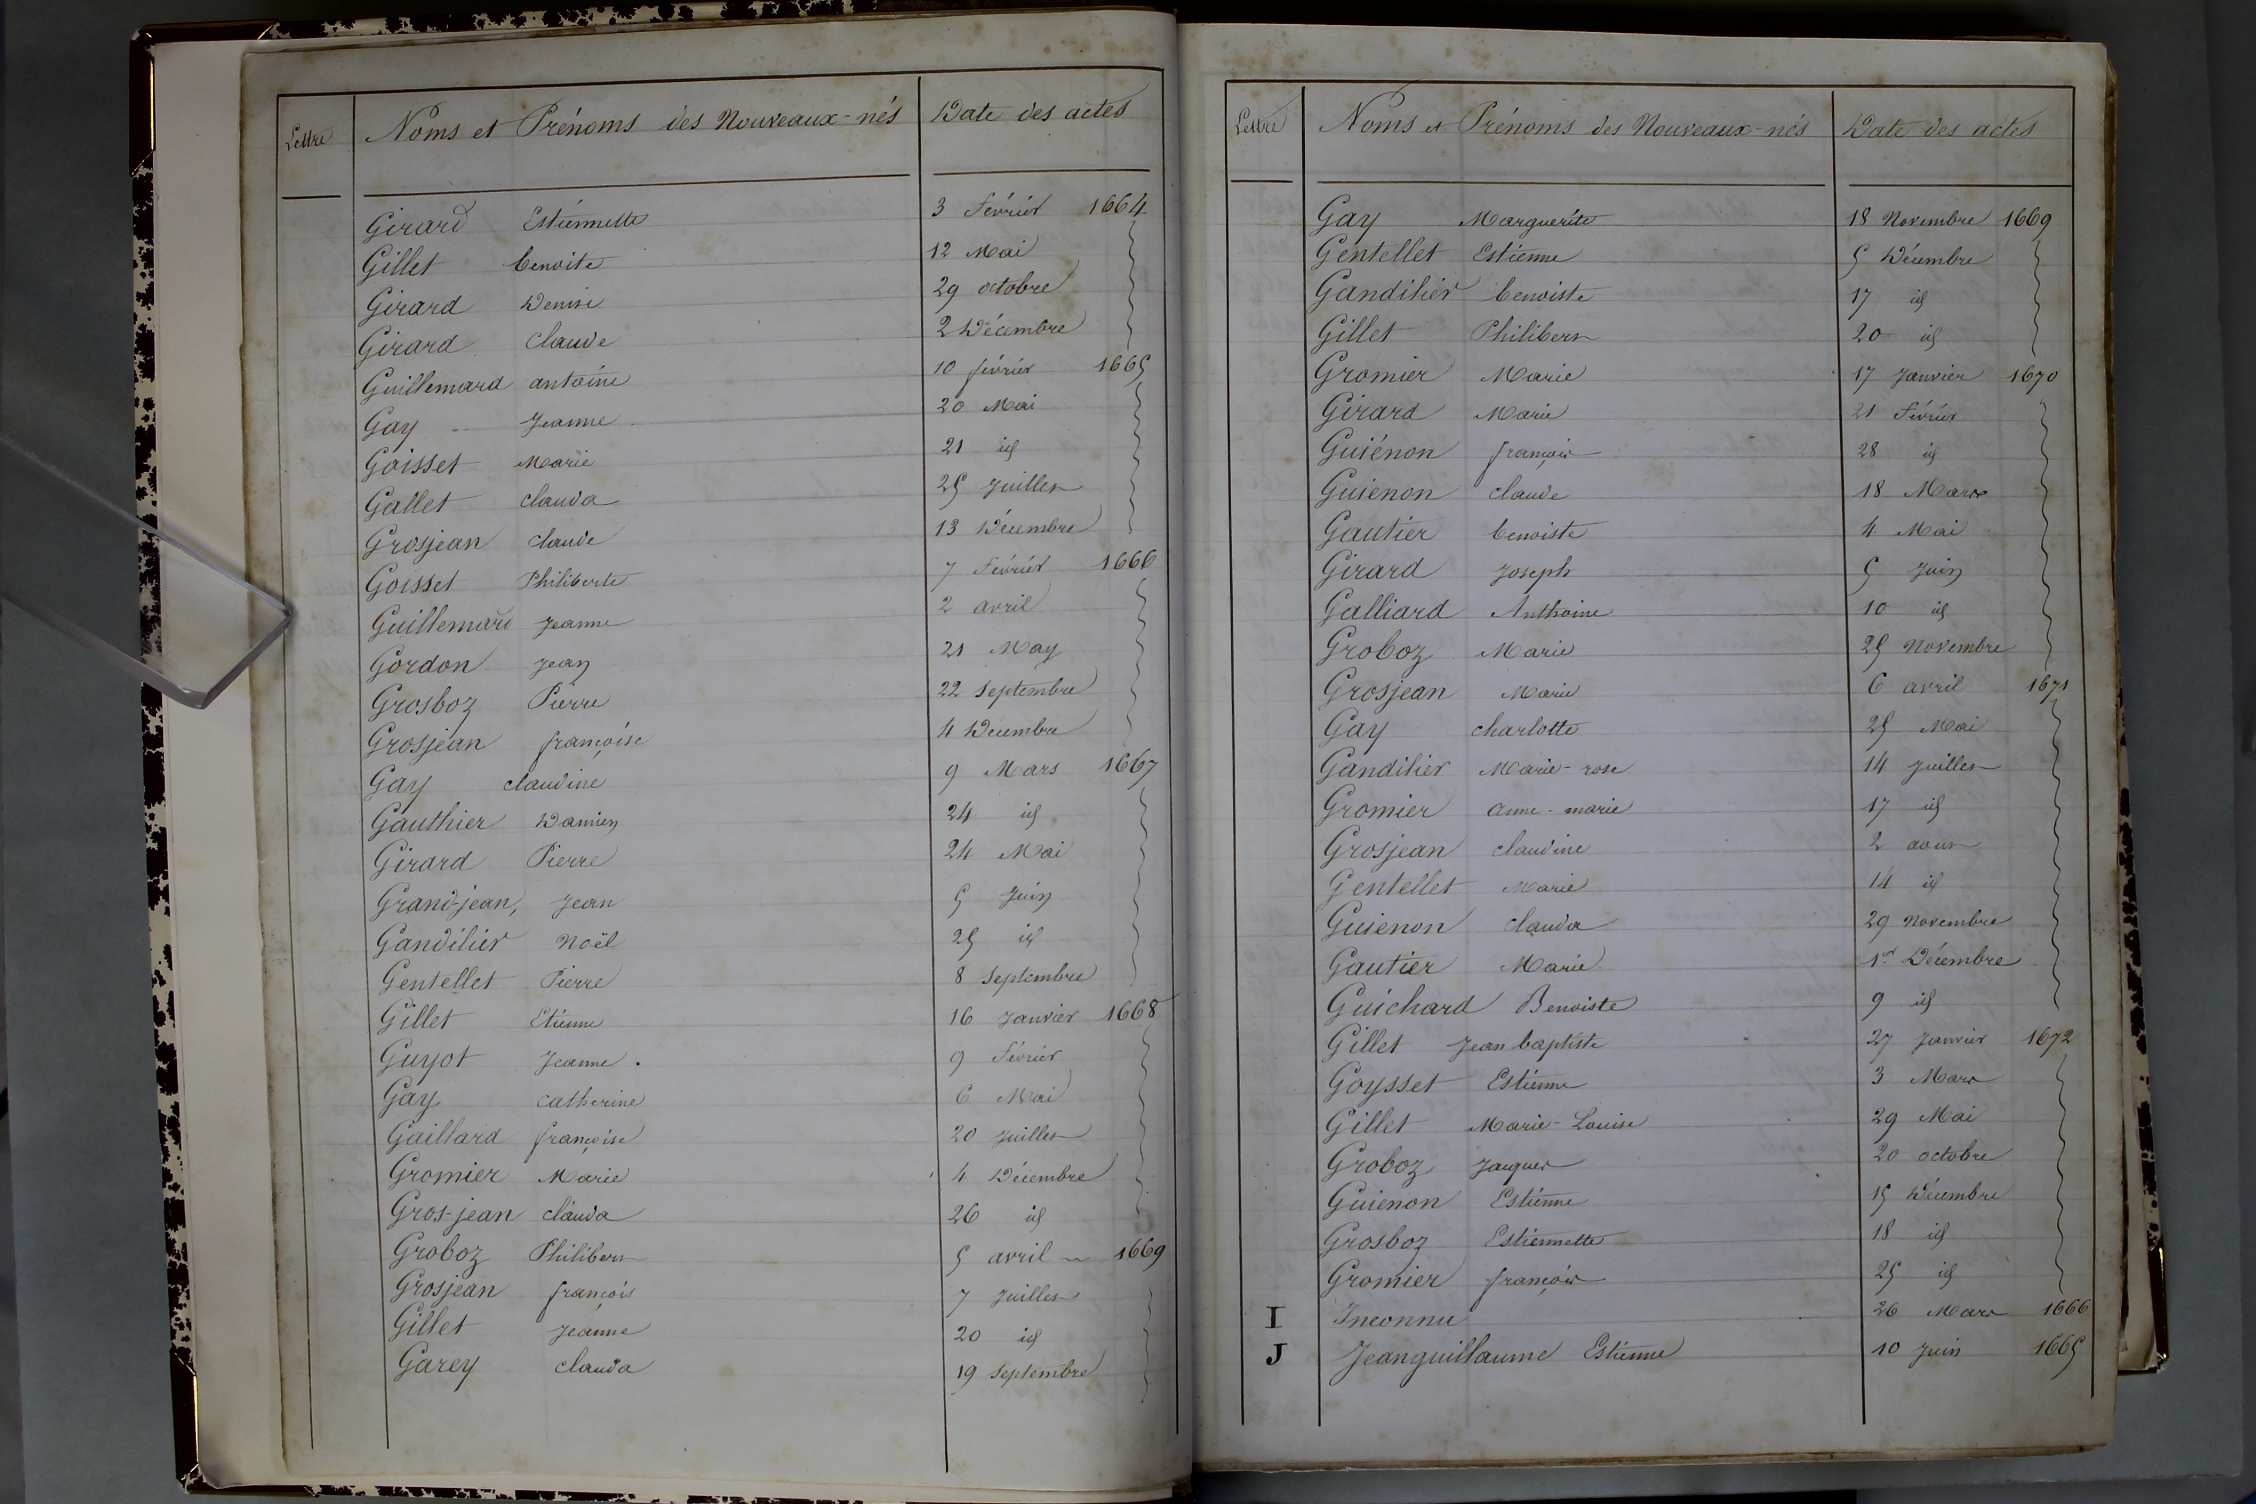 Lettre Noms et Prénoms des Nouveaux-nés Date des actes
Girard Estiennette 3 Février 1664
Gillet benoite 12 Mai
Girard Denise 29 octobre
Girard Claude 2 Décembre
Guillemard antoine 10 février 1665
Gay Jeanne 20 Mai
Goisset Marie 21 id
Gallet clauda 25 Juillet
Grosjean claude 13 Décembre
Goisset Philiberte 7 Février 1666
Guillemard Jeanne 2 avril
Gordon Jean 21 May
Grosboz Pierre 22 Septembre
Grosjean françoise 4 Décembre
Gay claudine 9 Mars 1667
Gauthier Damien 24 id
Girard Pierre 24 Mai
Grand-jean, Jean 5 Juin
Gandilier Noël 25 id
Gentellet Pierre 8 Septembre
Gillet Etienne 16 Janvier 1668
Guyot Jeanne. 9 Février
Gay catherine 6 Mai
Gaillard françoise 20 Juillet
Gromier Marie 4 Décembre
Gros-jean clauda 26 id
Groboz Philibert 5 avril 1669
Grosjean françois 7 Juillet
Gillet Jeanne 20 id
Garey clauda 19 Septembre
Lettre Noms et Prénoms des Nouveaux-nés Date des actes
Gay Marguerite 18 Novembre 1669
Gentellet Estienne 5 Décembre
Gandilier benoiste 17 id
Gillet Philibert 20 id
Gromier Marie 17 Janvier 1670
Girard Marie 21 Février
Guiénon françois 28 id
Guienon claude 18 Mars
Gautier benoiste 4 Mai
Girard Joseph 5 Juin
Galliard Anthoine 10 id
Groboz Marie 25 Novembre
Grosjean Marie 6 avril 1671
Gay charlotte 25 Mai
Gandilier Marie-rose 14 Juillet
Gromier anne-marie 17 id
Grosjean claudine 2 aout
Gentellet Marie 14 id
Guienon clauda 29 Novembre
Gautier Marie 1er Décembre
Guichard Benoiste 9 id
Gillet Jean baptiste 27 Janvier 1672
Goysset Estienne 3 Mars
Gillet Marie-Louise 29 Mai
Groboz Jacques 20 octobre
Guienon Estienne 15 Décembre
Grosboz Estiennette 18 id
Gromier françois 25 id
I Inconnu 26 Mars 1666
J Jeanguillaume Estienne 10 Juin 1665